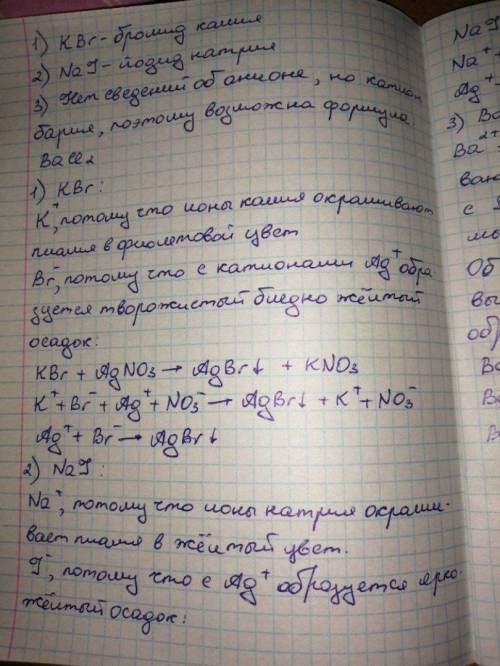 1) KBr - бромид калия
2) NaI - йодид натрия
3) Нет сведений об анионе, но катион
бария, поэтому возможна формула
BaCl2
1) KBr:
K⁺, потому что ионы калия окрашивают
пламя в фиолетовой цвет
Br⁻, потому что с катионами Ag⁺ обра
зуется творожистый бледно жёлтый
осадок:
KBr + AgNO3 → AgBr↓ + KNO3
K⁺ + Br⁻ + Ag⁺ + NO3⁻ → AgBr↓ + K⁺ + NO3⁻
Ag⁺ + Br⁻ → AgBr↓
2) NaI:
Na⁺, потому что ионы натрия окраши-
вает пламя в жёлтый цвет.
I⁻, потому что с Ag⁺ образуется ярко-
жёлтый осадок:
NaI
Na⁺ +
Ag⁺
3) Ba
Ba²⁺
ваю
с
Об
вы
обр
Ba
Ba